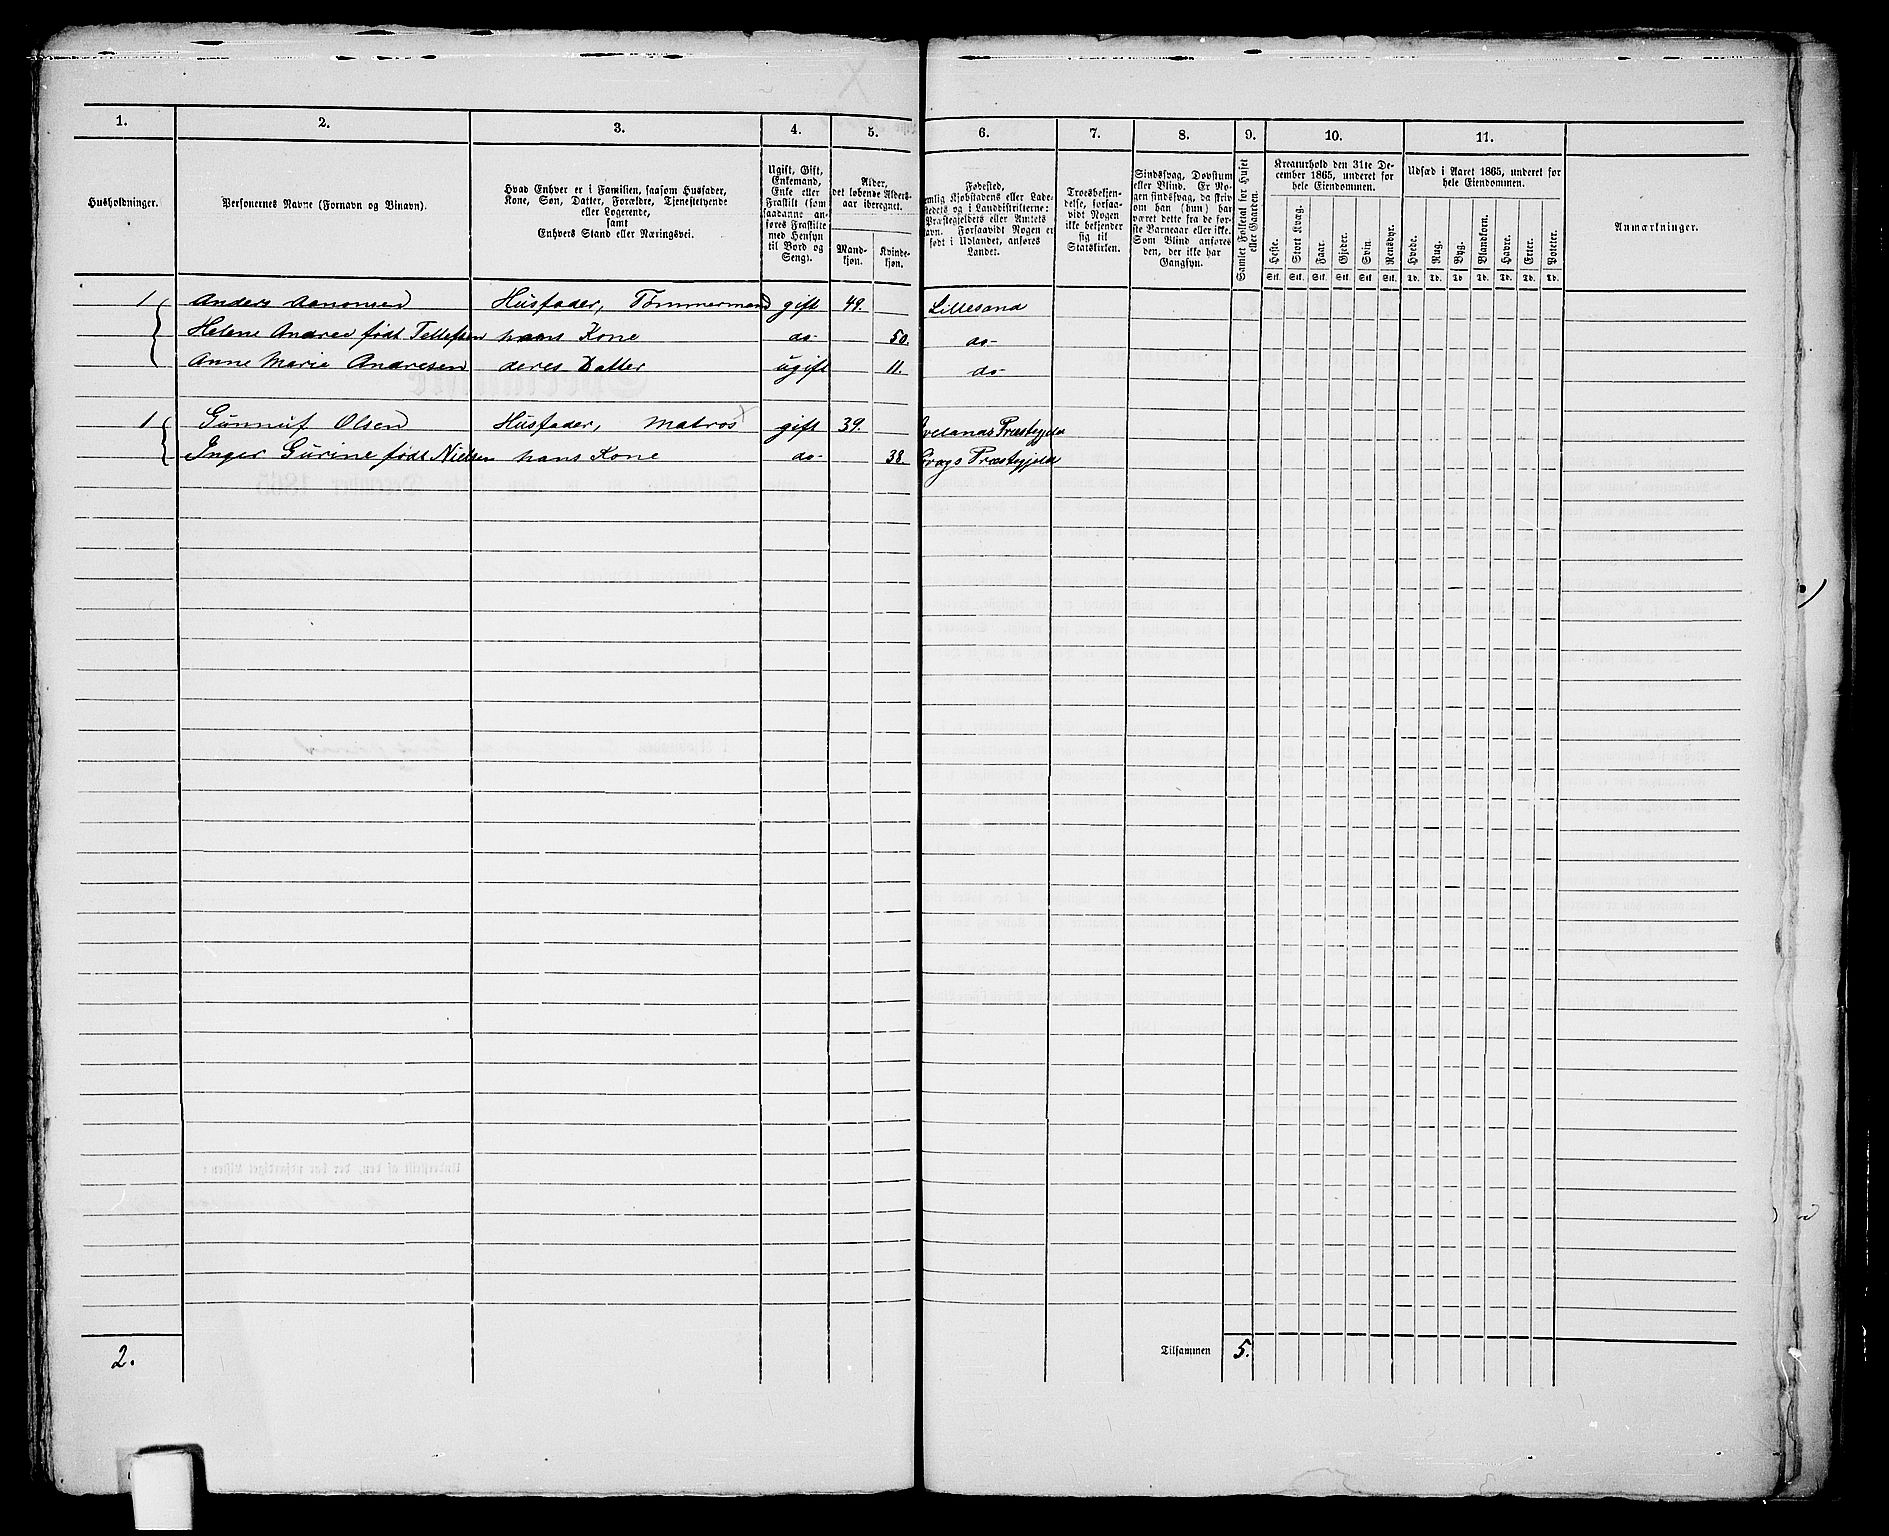 1. 2. 3. 4. 5. 6. 7. 8. 9. 10. 11.
Husholdninger.
Personernes Navne (Fornavn og Binavn).
Hvad Enhver er i Familien, saasom Husfader,
Kone, Søn, Datter, Forældre, Tjenestetyende
eller Logerende,
samt
Enhvers Stand eller Næringsvei.
Ugift, Gift,
Enkemand,
Enke eller
Fraskilt (som
saadanne an-
føres Fraskilte
med Hensyn
til Bord og
Seng).
Alder,
det løbende Alders-
aar iberegnet.
Mand-
kjøn.
Kvinde-
kjøn.
Fødested,
emlig Kjøbstadens eller Lade-
stedets og i Landdistrikterne:
Præstegjeldets eller Amtets
avn. Forsaavidt Nogen er
født i Udlandet, anføres
Landet.
Troesbekjen-
delse, forsaa-
vidt Nogen
ikke bekjender
sig til
Statskirken.
Sindssvag, Døvstum
eller Blind. Er No-
gen sindssvag, da skriv
om han (hun) har
været dette fra de før-
ste Barneaar eller ikke.
Som Blind anføres
den, der ikke har
Gangsyn.
Samlet Folketal for Huset
eller Gaarden.
Kreaturhold den 31te De-
cember 1865, underet for
hele Eiendommen.
Heste. Stort Kvæg. Faar. Gjeder. Svin. Rensdyr.
Stk. Stk. Stk. Stk. Stk. Stk.
Udsæd i Aaret 1865, underet for
hele Eiendommen.
Hvede. Rug. Byg. Blandkorn. Havre. Erter. Poteter.
Td. Td. Td. Td. Td. Td. Td.
Anmærkninger.
1 Anders Aanonsen Husfader, Tømmermand gift 49. Lillesand
Helene Andrea født Tellefsen hans Kone do- 50. do-
Anne Marie Andresen deres Datter ugift 11. do-
1 Gunnuf Olsen Husfader, Matros gift 39. Evelands Præstegjeld
Inger Gurine født Nielsen hans Kone do- 38. Præstegjeld
2. Tilsammen 5.